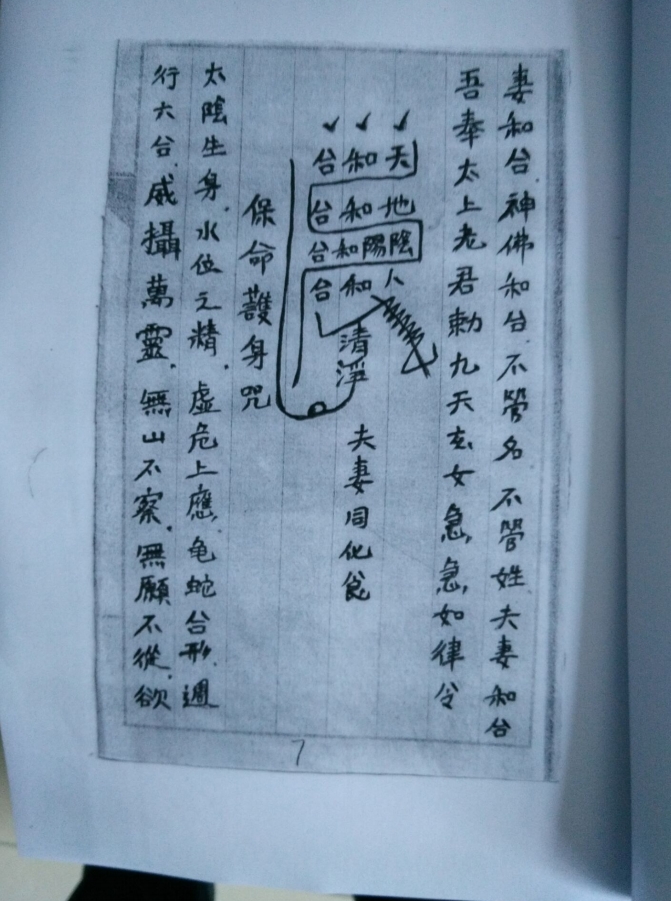 妻和合.神佛和合.不管名.不管姓夫妻和合
吾奉太上老君勅九天玄女急,急,如律令
天和合
地和合
陰陽和合
人和合
清淨
夫妻同化食
保命護身咒
太陰生身.水位之精.虛危上應,龟蛇合形.週
行六合.威攝萬靈.無山不察.無願不從.欲
7